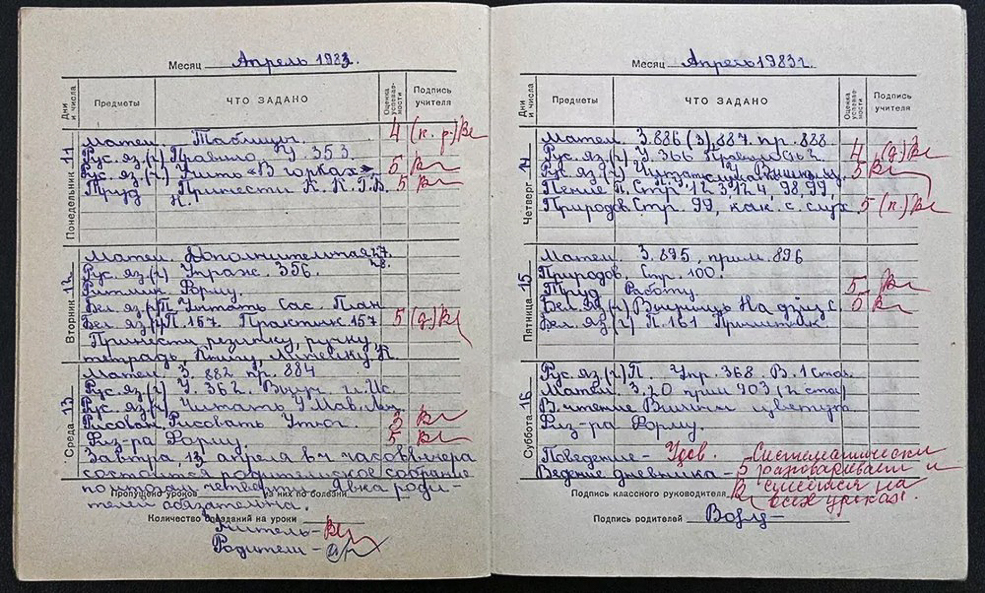 Месяц Апрель 1983.
Дни и числа Предметы ЧТО ЗАДАНО Оценка успеваемости Подпись учителя
Понедельник 11
Матем. Таблицы. 4 (к. р.)
Рус. яз. (1) Правило У. 353.
Рус. яз. (2) Учить «В горках» 5
Труд Принести К. К. Г. В. 5
Н.
Вторник 12
Матем. Дополнительная 27.
28.
Рус. яз. (1) Упраж. 356.
Ритмик Форму.
Бел. яз. (1) П. Читать Сас. План
Бел. яз. (1) П. 157. Практик 157 5 (д)
Принести, резинку, ручку,
тетрадь, книгу, линейку К.
Среда 13
Матем. З. 882 пр. 884
Рус. яз. (1) У. 362.
Рус. яз. (2) Читать
Рисован. Рисовать Утюг. 3
Физ-ра Форму. 5
Завтра, 13 апреля в часов вечера
состоится родительское собрание
по итогам четверти. Явка роди-
телей обязательна.
Пропущено уроков из них по болезни
Количество опозданий на уроки
Учитель-
Родители -
Месяц Апрель 1983г.
Дни и числа Предметы ЧТО ЗАДАНО Оценка успеваемости Подпись учителя
Четверг 14
Матем. З. 886 (3), 887. пр. 888
Рус. яз. (1) У. 366 4 (д)
Рус. яз. (2) Читать 5
Пение П. Стр. 12 3, 12 4 98, 99
Природов. Стр. 99, как с слух. 5 (п.)
Пятница 15
Матем. З. 895, прим. 896
Природов. Стр. 100.
Труд Работу 5
Бел. яз. (1) На 5
Бел. яз. (2) П. 161
Суббота 16
Рус. яз. (1) П. Упр. 368. В. 1 стол.
Матем. З. 20 прим 903 (2 стол)
В. чтение Вишни цветут
Физ-ра Форму.
Поведение - Удов. Систематически
Ведение дневника - 5 разговаривает и
Подпись классного руководителя смеётся на
всех уроках.
Подпись родителей